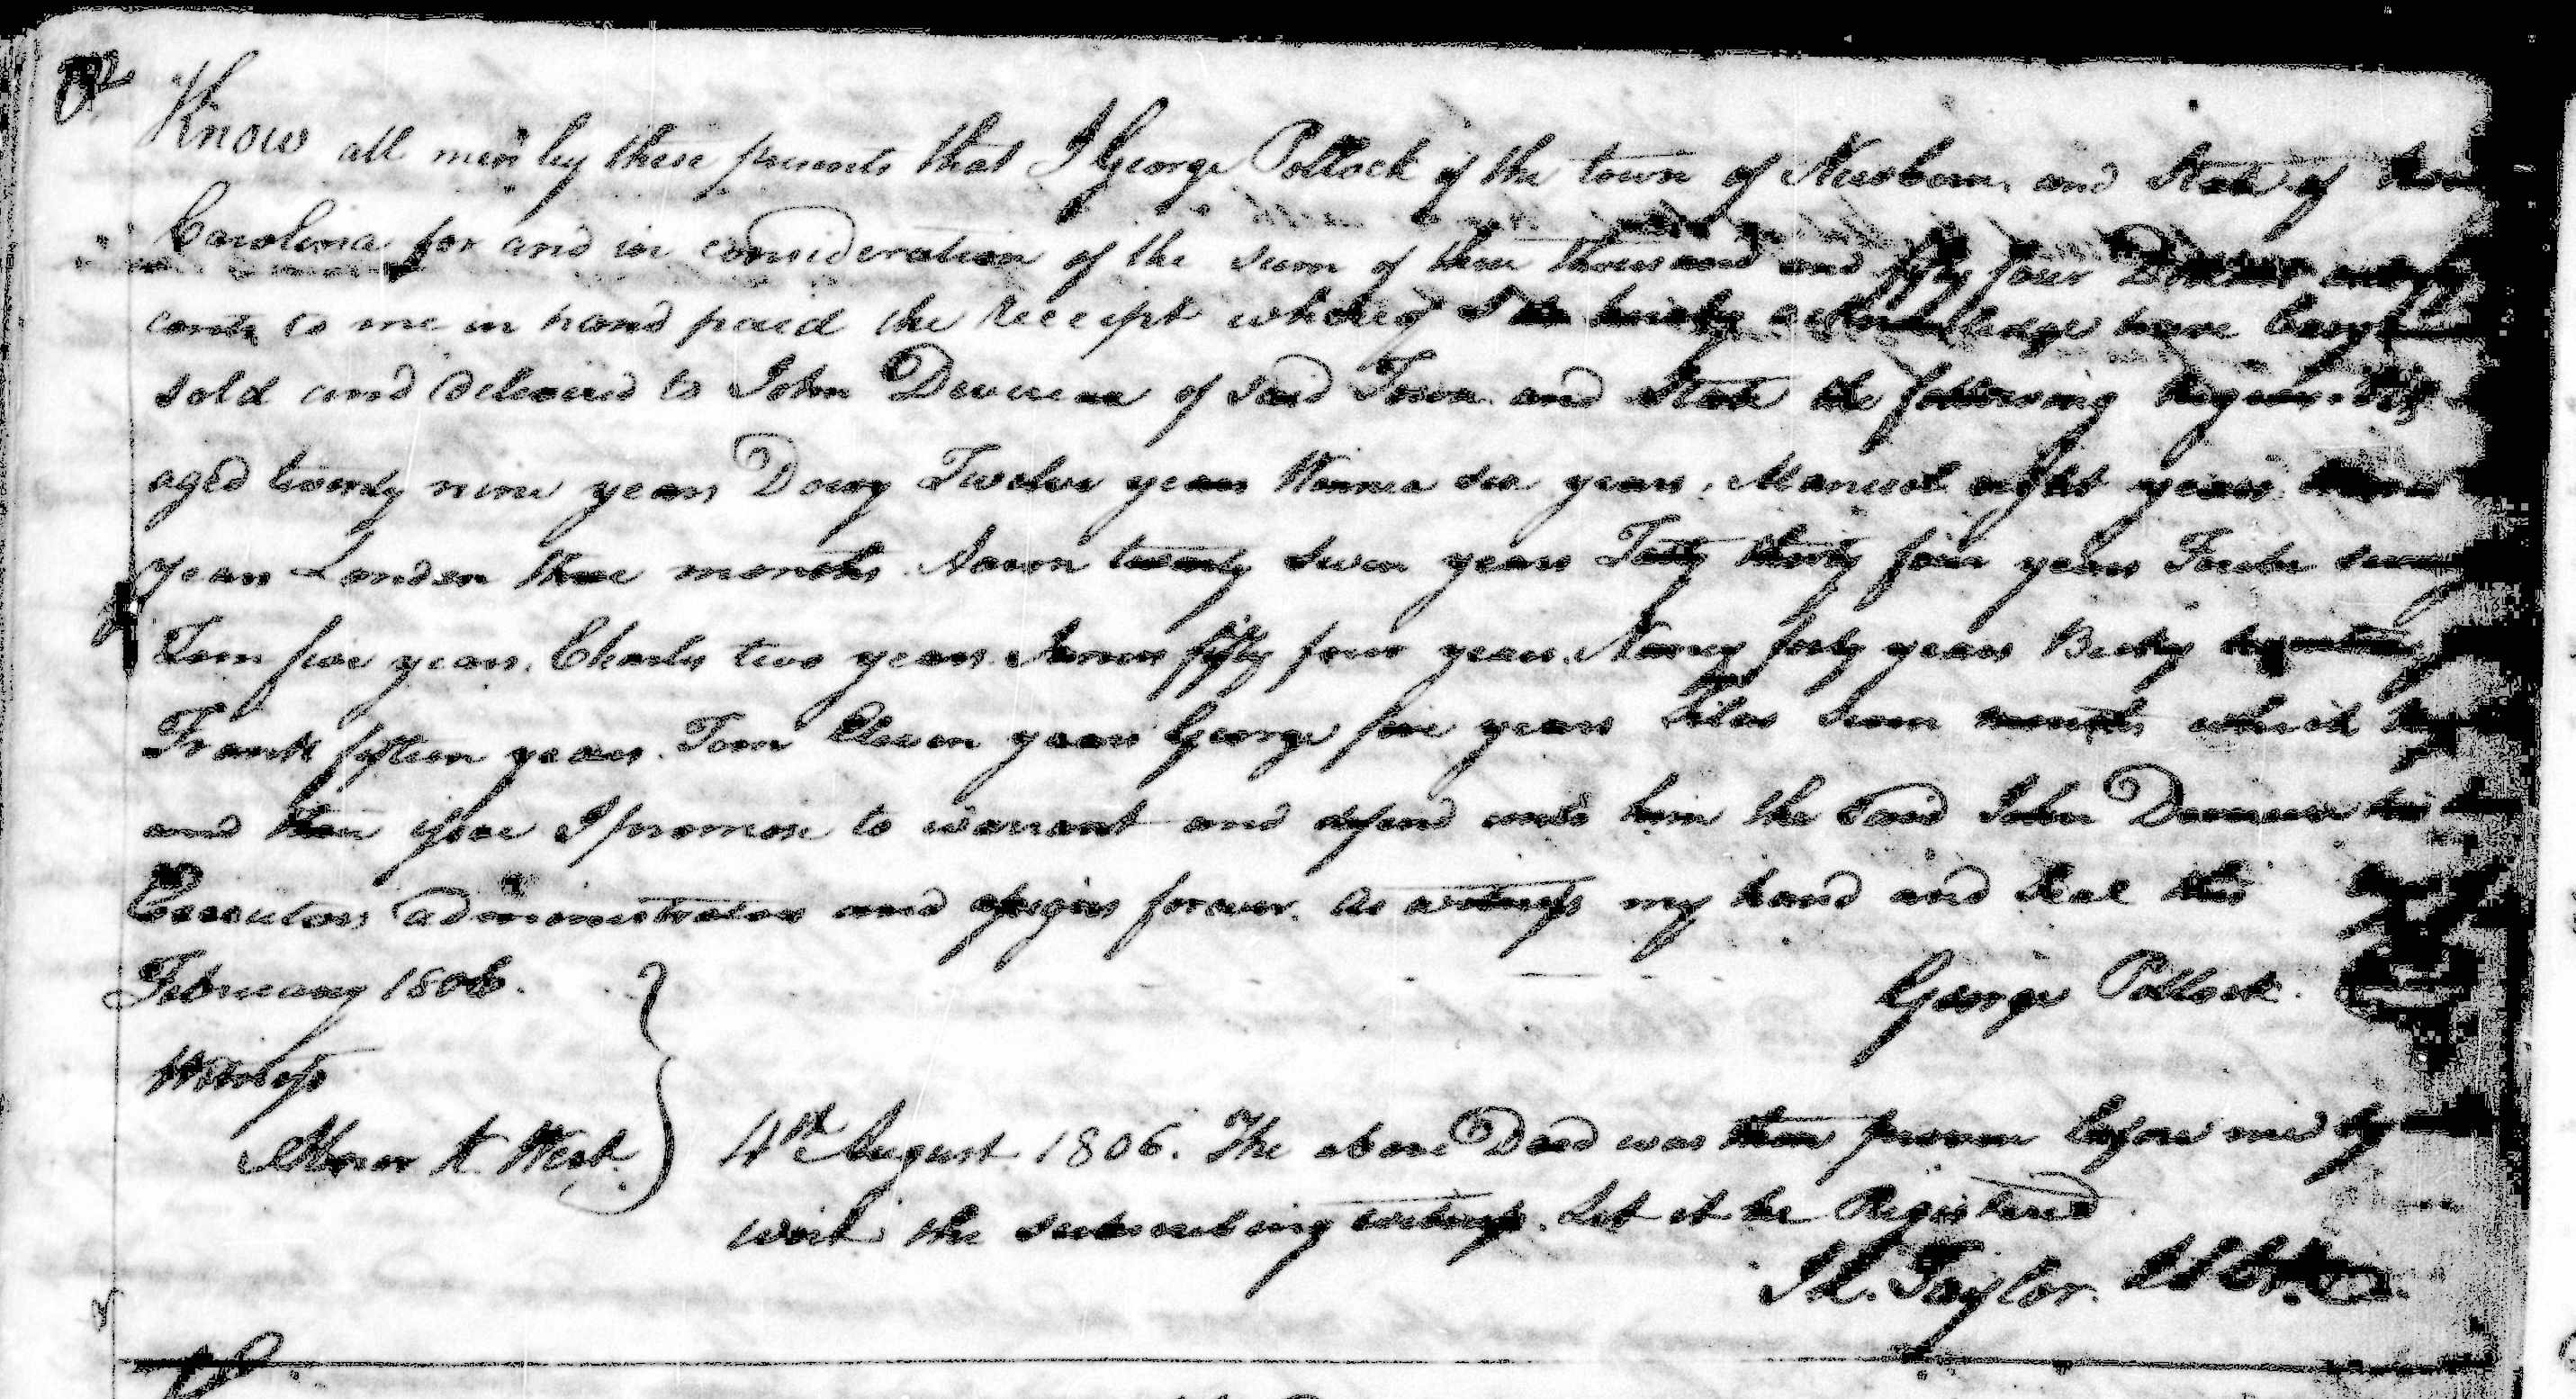 Know all men by these presents that I George Pollock of the town of Newbern and State of
Carolina for and in consideration of the sum of three thousand and fifty four Dollars
cents to me in hand paid the receipt whereof I do hereby acknowledge have
sold and delivered to John Devereux of said Town and State the following Negroes Viz
aged twenty nine years Doucy Twelve years Winnea six years. Manuel eight years
years London three months. Naom twenty seven years thirty four years
Tom five years. Charles two years. fifty four years. Nancy forty years Becky
Frank fifteen years. Tom Eleven years George five years Silas seven months which
and I promise to warrant and defend unto him the said John Devereux his
Executors administrators and assigns forever. As witness my hand and seal this
February 1806.
George Pollock.
Witness
West.
4th August 1806. The above Deed was then proven before me by
the subscribing witness. Let it be Registered.
Taylor.